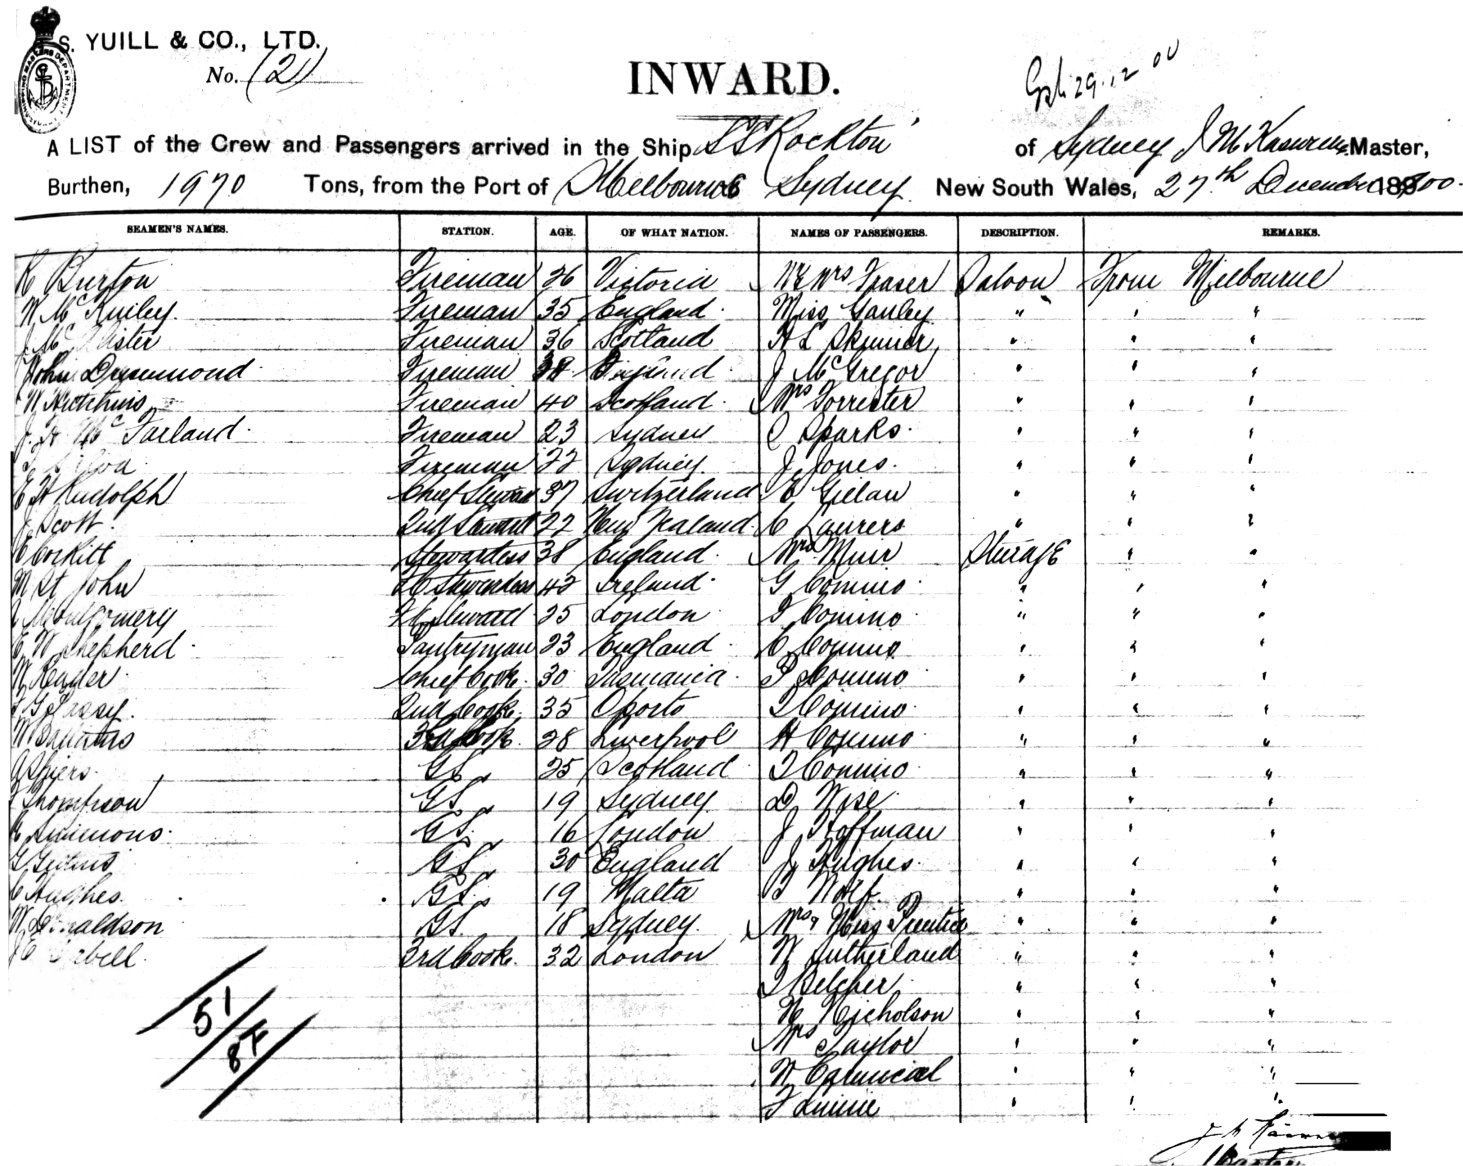 S. YUILL & CO., LTD.
No. (2)
INWARD.
29.12.00
A LIST of the Crew and Passengers arrived in the Ship SS Rockton of Sydney J M Master,
Burthen, 1970 Tons, from the Port of Melbourne Sydney New South Wales, 27th December 1900.
SEAMEN'S NAMES. STATION. AGE. OF WHAT NATION. NAMES OF PASSENGERS. DESCRIPTION. REMARKS.
Burton Fireman 26 Victoria Mrs Fraser Saloon From Melbourne
W Fireman 35 England. Miss Ganley " " "
J Fireman 36 Scotland H L Skinner " " "
John Drummond Fireman England. J McGregor " " "
W Fireman 40 Scotland. Mrs Forrester " " "
J. McFarland. Fireman 23 Sydney C Sparks. " " "
Fireman 22 Sydney. J Jones. " " "
E H Rudolph Chief Steward 37 Switzerland E " " "
J Scott. 2nd 22 New Zealand. C " " "
Stewardess 38 England. Mrs Muir Steerage " "
M St John Stewardess 42 Ireland. G Comino " " "
Montgomery Steward 25 London J Comino " " "
E W Shepherd. Pantryman 23 England. C Comino " " "
W Reader. Chief Cook. 30 Tasmania. P Comino " " "
2nd Cook. 35 Oporto Comino. " " "
W 3rd Cook. 28 Liverpool H Comino " " "
Spiers. GS. 25 Scotland. Comino " " "
Thompson GS. 19 Sydney D Wise. " " "
Simmons. GS. 16 London J Hoffman " " "
GS. 30 England J Hughes. " " "
C Hughes. GS. 19 Malta B Wolf. " " "
W Donaldson GS. 18 Sydney. Mrs & Miss Prentice " " "
J E 3rd Cook. 32 London W Sutherland " " "
Belcher " " "
Nicholson " " "
Mrs Taylor " " "
W " " "
F " " "
51/87